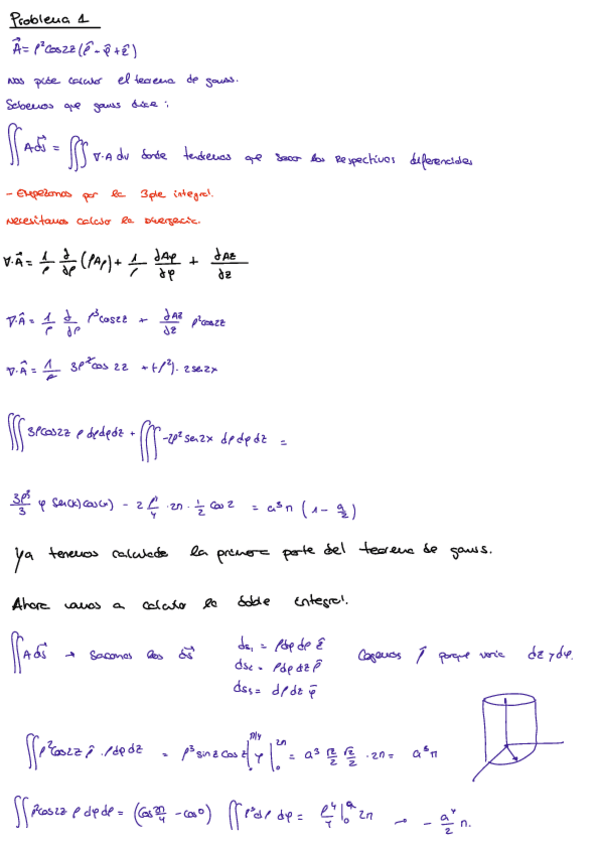 Problema 1
Â = ρ²cos2z (ρ̂ - φ̂ + ẑ)
Nos pide calcular el teorema de gauss.
Sabemos que gauss dice:
∬ A ds⃗ = ∭ ∇·A dv donde tendremos que sacar los respectivos diferenciales
- Empezamos por la 3ple integral.
Necesitamos calcular la divergencia.
∇·A⃗ = 1/ρ ∂/∂ρ (ρAρ) + 1/ρ ∂Aφ/∂φ + ∂Az/∂z
∇·A⃗ = 1/ρ ∂/∂ρ ρ³cos2z + ∂Az/∂z ρ²cos2z
∇·A⃗ = 1/ρ 3ρ²cos 2z + (-ρ²)· 2sen2x
∭ 3ρcos2z ρ dρdφdz + ∭ -2ρ² sen2x dρ dφ dz =
3ρ³/3 φ sen(x)cos(x) - 2 ρ⁴/4 · 2π · 1/2 cos 2 = a³π (1 - a/2)
Ya tenemos calculada la primera parte del teorema de gauss.
Ahora vamos a calcular la doble integral.
∬ A ds⃗ → Sacamos los ds⃗
ds₁ = ρdφ dρ ẑ
ds₂ = ρdφ dz ρ̂
ds₃ = dρ dz φ̂
Cogemos ρ̂ porque varia dz y dφ.
∬ ρ²cos2z ρ̂ · ρdφ dz = ρ³ sinz cosz |₀^π/4 φ |₀^2π = a³ √2/2 √2/2 · 2π = a³π
∬ ρ²cos2z ρ dφ dρ = (cos 2π/4 - cos0) ∬ ρ³dρ dφ = ρ⁴/4 |₀^a 2π → - a⁴/2 π.